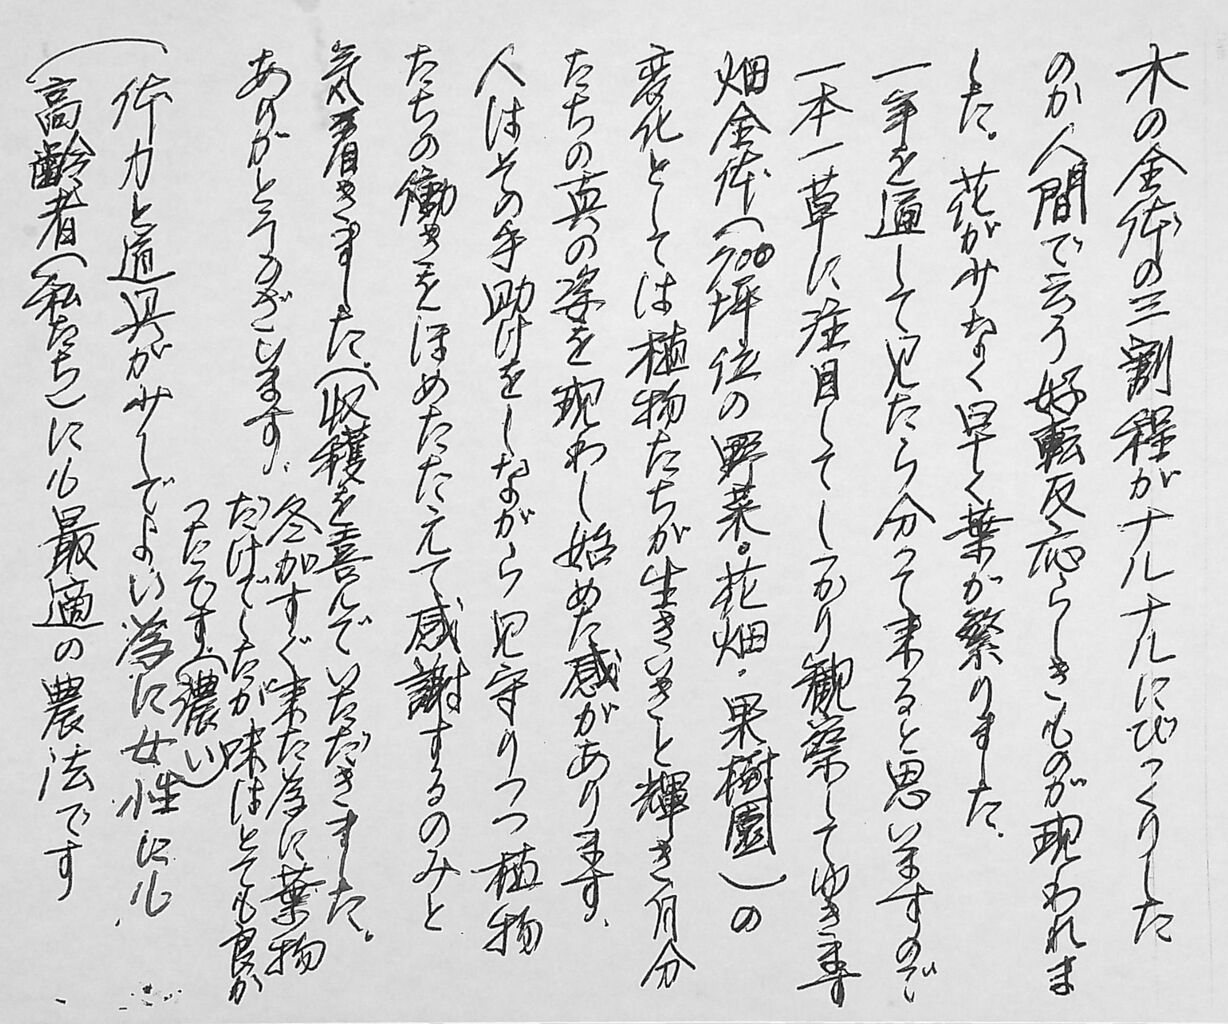 木の全体の三割程がナルナルにびっくりした
のか人間で云う好転反応らしきものが現われま
した。花がみなく早く葉が繁りました。
一年を通して見たら分って来ると思いますので
一本一草に注目してしっかり観察してゆきます
畑全体(700坪位の野菜。花畑・果樹園)の
変化としては植物たちが生きいきと輝き自分
たちの真の姿を現わし始めた感があります。
人はその手助けをしながら見守りつつ植物
たちの働きをほめたたえて感謝するのみと
気着きました。(収穫を喜んでいただきました。
ありがとうございます。
冬がすぐ来た為に葉物
だけでしたが味はとても良か
ったです。(濃い)
体力と道具がみしでよい為に女性にも
(高齢者(私たち)にも最適の農法です